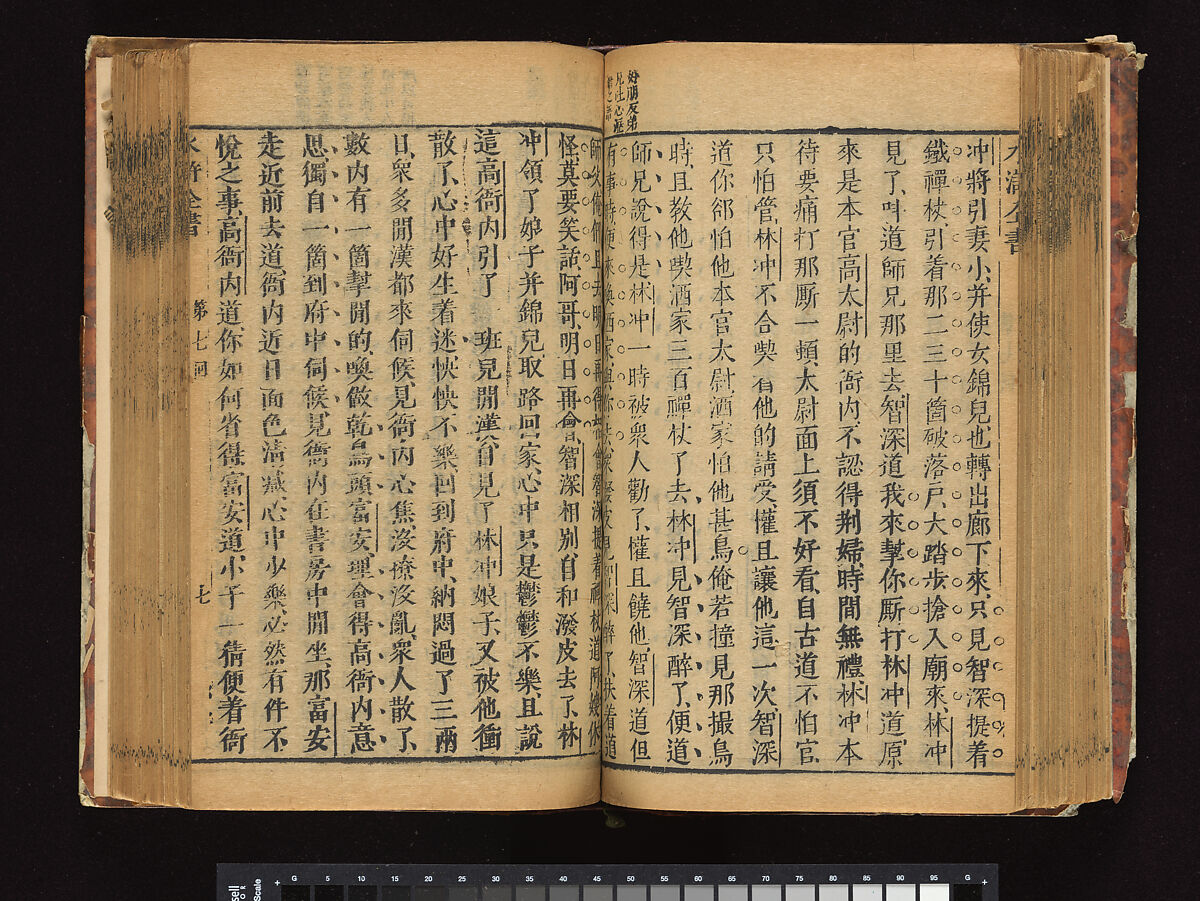 水滸全書
冲將引妻小、并使女錦兒也轉出廊下來、只見智深提着
鐵禪杖、引着那二三十箇破落戶、大踏步搶入廟來、林冲
見了、叫道師兄那里去智深道我來幫你厮打林冲道原
來是本官高太尉的衙内、不認得荆婦、時間無禮、林冲本
待要痛打那厮一頓、太尉面上須不好看、自古道不怕官
只怕管、林冲不合喫着他的請受、權且讓他這一次、智深
道你却怕他本官太尉、洒家怕他甚鳥、俺若撞見那撮鳥
時、且教他喫洒家三百禪杖了去、林冲見智深醉了、便道
師兄說得是林冲一時被衆人勸了、權且饒他、智深道但
好朋友弟
有事時便來喚洒家與你去衆潑皮見智深醉了、扶着道
師父俺們且去明日再得相會智深提着禪杖道阿嫂休
怪、莫要笑話、阿哥、明日再會、智深相别、自和潑皮去了、林
冲領了娘子并錦兒取路回家、心中只是鬱鬱不樂、且說
這高衙内引了一班兒閒漢、自見了林冲娘子、又被他衝
散了、心中好生着迷、怏怏不樂、回到府中、納悶過了三兩
日、衆多閒漢都來伺候、見衙内心焦、没撩没亂、衆人散了、
數内有一箇幫閒的、喚做乾鳥頭富安、理會得高衙内意
思、獨自一箇到府中伺候、見衙内在書房中閒坐、那富安
走近前去道、衙内近日面色清減、心中少樂、必然有件不
悅之事、高衙内道、你如何省得、富安道、小子一猜便着衙
水滸全書 第七回 七
G 5 10 15 20 30 40 50 60 70 80 85 90 95 G
Scale